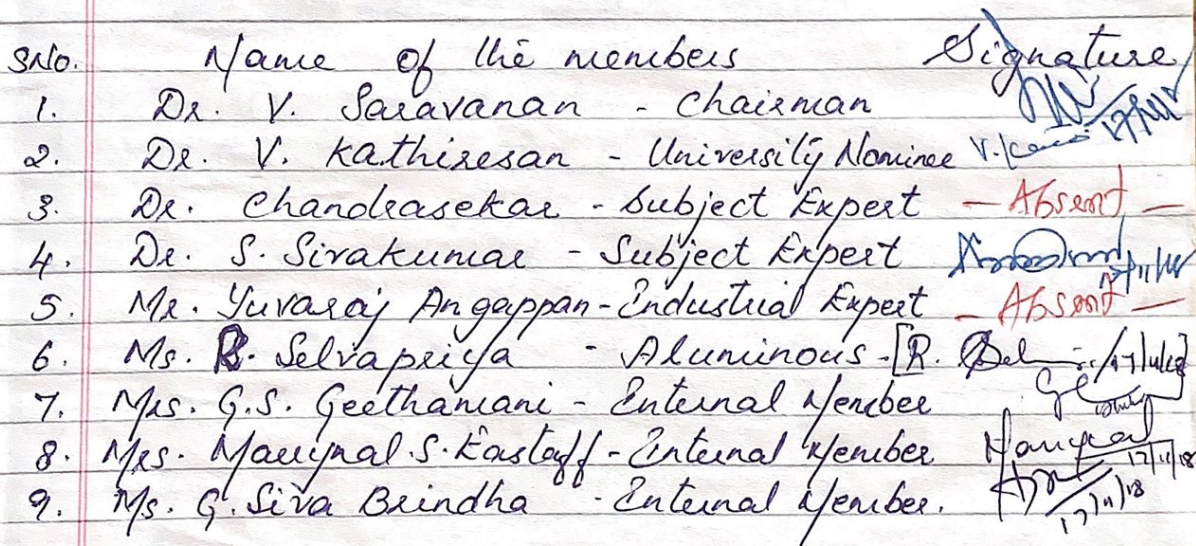 SNo. Name of the members Signature
1. Dr. V. Saravanan - Chairman 17/11/18
2. Dr. V. Kathiresan - University Nominee V.
3. Dr. Chandrasekar - Subject Expert - Absent -
4. Dr. S. Sivakumar - Subject Expert
5. Mr. Yuvaraj Angappan - Industrial Expert - Absent -
6. Ms. R. Selvapriya - Aluminous - [R. 17/11/18]
7. Mrs. G.S. Geethamani - Internal Member
8. Mrs. Mangnal.S.Kastaff - Internal Member 17/11/18
9. Ms. G. Siva Brindha - Internal Member. 17/11/18